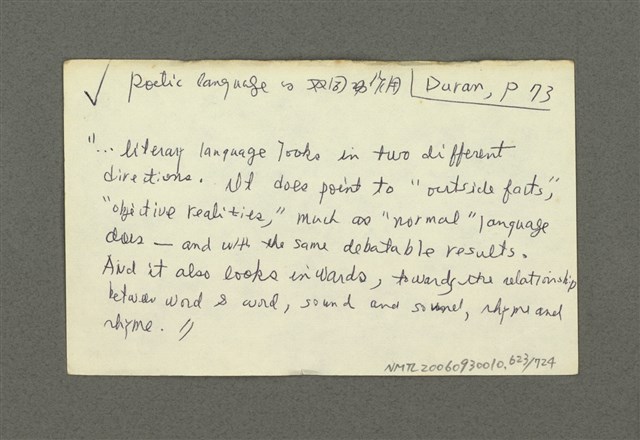 ✓ Poetic language の双向動作用 Duran, p 73
"... literary language looks in two different
directions. It does point to "outside facts,"
"objective realities," much as "normal" language
does — and with the same debatable results.
And it also looks inwards, towards the relationship
between word & word, sound and sound, rhyme and
rhyme. "
NMTL20060930010.623/724